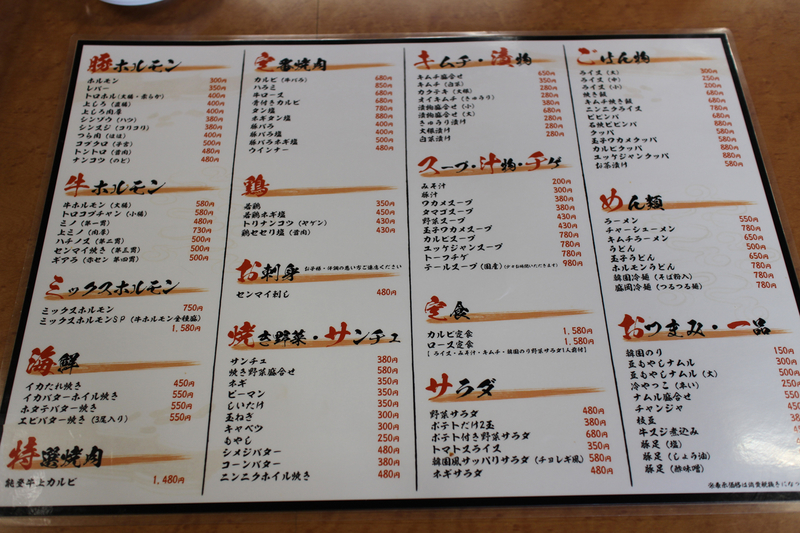 豚ホルモン
ホルモン 300円
レバー 350円
トロホル(大腸・柔らか) 400円
上しろ(直腸) 400円
上しろ肉厚 400円
シンゾウ(ハツ) 380円
シンヌジ(コリコリ) 380円
つら肉(ほほ) 400円
コブクロ(子宮) 500円
トントロ(首肉) 480円
ナンコツ(のど) 480円
牛ホルモン
牛ホルモン(大腸) 580円
トロコプチャン(小腸) 580円
ミノ(第一胃) 480円
上ミノ(肉厚) 730円
ハチノス(第二胃) 500円
センマイ焼き(第三胃) 500円
ギアラ(赤セン 第四胃) 500円
ミックスホルモン
ミックスホルモン 750円
ミックスホルモンSP(牛ホルモン全種盛)
1,580円
海鮮
イカたれ焼き 450円
イカバターホイル焼き 550円
ホタテバター焼き 550円
エビバター焼き(3尾入り) 550円
特選焼肉
能登牛上カルビ 1,480円
定番焼肉
カルビ(牛バラ) 680円
ハラミ 850円
牛ロース 680円
骨付きカルビ 680円
タン塩 780円
ネギタン塩 880円
豚バラ 400円
豚バラ塩 400円
豚バラネギ塩 500円
ウインナー 480円
鶏
若鶏 350円
若鶏ネギ塩 450円
トリナンコツ(ヤゲン) 430円
鶏セセリ塩(首肉) 430円
お刺身 お子様・汁鍋の悪い方ご遠慮ください
センマイ刺し 480円
焼き野菜・サンチェ
サンチェ 380円
焼き野菜盛合せ 580円
ネギ 350円
ピーマン 350円
しいたけ 350円
玉ねぎ 300円
キャベツ 300円
もやし 250円
シメジバター 480円
コーンバター 380円
ニンニクホイル焼き 480円
キムチ・漬物
キムチ盛合せ 650円
キムチ(白菜) 350円
カクテキ(大根) 280円
オイキムチ(きゅうり) 280円
漬物盛合せ(小) 380円
漬物盛合せ(大) 680円
きゅうり漬け 280円
大根漬け 280円
白菜漬け 280円
スープ・汁物・チゲ
みそ汁 200円
豚汁 300円
ワカメスープ 380円
タマゴスープ 380円
野菜スープ 430円
玉子ワカメスープ 430円
カルビスープ 780円
ユッケジャンスープ 780円
トーフチゲ 780円
テールスープ(国産) 980円
定食
カルビ定食 1,580円
ロース定食 1,580円
(ライス・みそ汁・キムチ・韓国のり野菜サラダ1人前付)
サラダ
野菜サラダ 480円
ポテトだけ2玉 380円
ポテト付き野菜サラダ 580円
トマトスライス 350円
韓国風サッパリサラダ(チョレギ風) 580円
ネギサラダ 480円
ごはん物
ライス(大) 300円
ライス(中) 250円
ライス(小) 200円
焼き飯 680円
キムチ焼き飯 680円
ニンニクライス 780円
ビビンバ 680円
石焼ビビンバ 880円
クッパ 580円
玉子ワカメクッパ 580円
カルビクッパ 880円
ユッケジャンクッパ 880円
お茶漬け 580円
めん類
ラーメン 550円
チャーシューメン 780円
キムチラーメン 650円
うどん 500円
玉子うどん 650円
ホルモンうどん 780円
韓国冷麺(そば粉入) 780円
盛岡冷麺(つるつる麺) 780円
おつまみ・一品
韓国のり 150円
豆もやしナムル 300円
豆もやしナムル(大) 500円
冷やっこ(本い) 250円
ナムル盛合せ 550円
チャンジャ
枝豆
牛スジ煮込み
豚足(塩)
豚足(しょう油)
豚足(酢味噌)